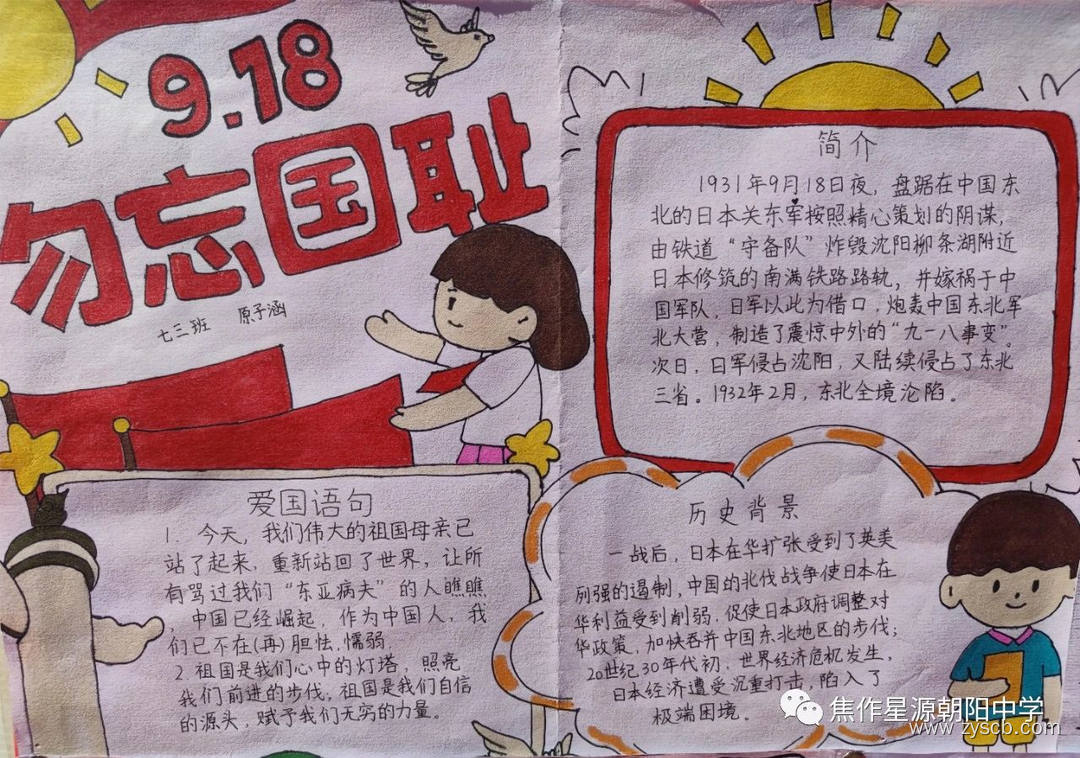 9.18
勿忘国耻
七三班 原子涵
简介
1931年9月18日夜，盘踞在中国东
北的日本关东军按照精心策划的阴谋，
由铁道“守备队”炸毁沈阳柳条湖附近
日本修筑的南满铁路路轨，并嫁祸于中
国军队，日军以此为借口，炮轰中国东北军
北大营，制造了震惊中外的“九一八事变”。
次日，日军侵占沈阳，又陆续侵占了东北
三省。1932年2月，东北全境沦陷。
爱国语句
1. 今天，我们伟大的祖国母亲已
站了起来，重新站回了世界，让所
有骂过我们“东亚病夫”的人瞧瞧
，中国已经崛起，作为中国人，我
们已不在(再)胆怯、懦弱。
2.祖国是我们心中的灯塔，照亮
我们前进的步伐；祖国是我们自信
的源头，赋予我们无穷的力量。
历史背景
一战后，日本在华扩张受到了英美
列强的遏制，中国的北伐战争使日本在
华利益受到削弱，促使日本政府调整对
华政策，加快吞并中国东北地区的步伐；
20世纪30年代初，世界经济危机发生，
日本经济遭受沉重打击，陷入了
极端困境。
焦作星源朝阳中学
www.zyscb.com